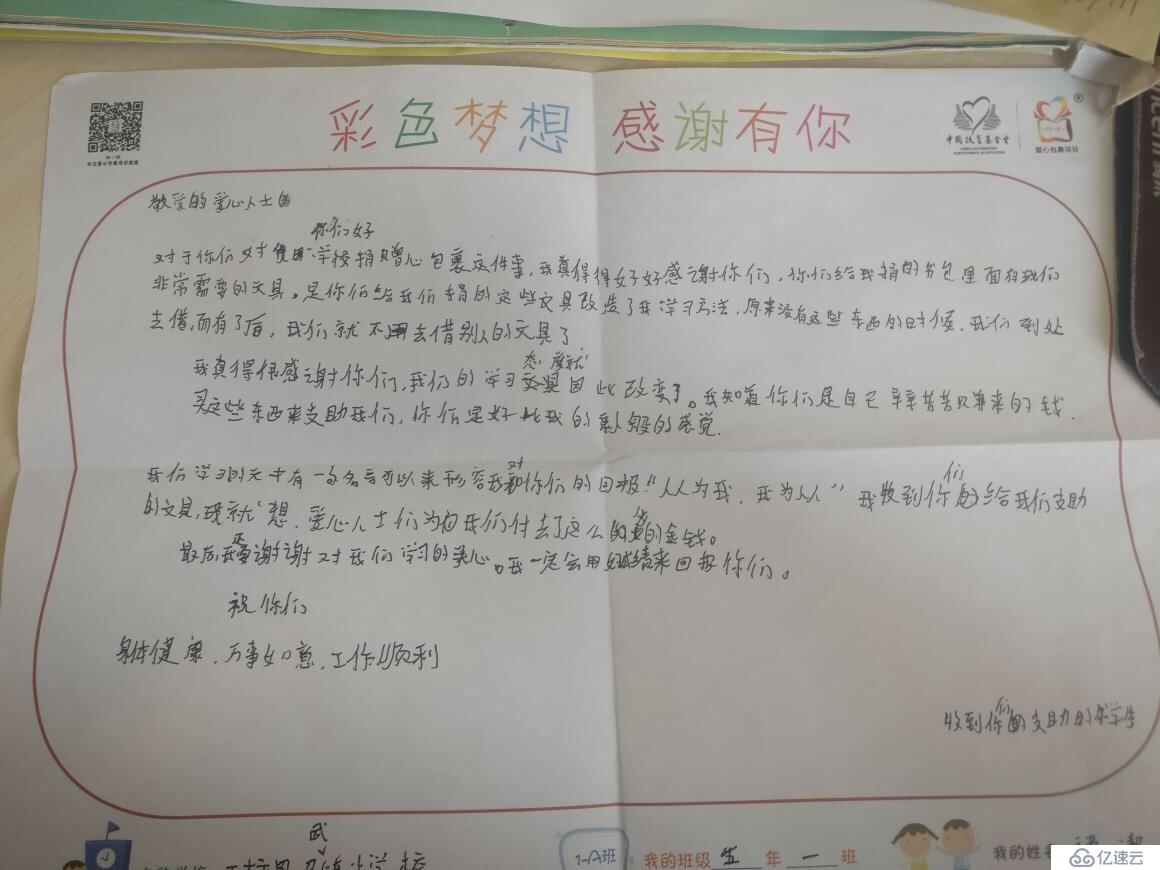 彩色梦想 感谢有你
中国扶贫基金会
CHINA FOUNDATION FOR POVERTY ALLEVIATION
爱心包裹项目
敬爱的爱心人士
你们好
对于你们对学校捐赠心包裹这件事，我真得得好好感谢你们，你们给我捐的书包里面有我们
非常需要的文具。是你们给我们捐的这些文具改造了我学习方法，原来没有这些东西的时候，我们到处
去借，而有了后，我们就不用去借别人的文具了
我真得很感谢你们，我们的学习态度就因此改变了。我知道你们是自己辛辛苦苦的钱，
买这些东西来支助我们，你们是好比我的的感觉.
我们学习的中有一句名言可以来形容我对你们的回报“人人为我，我为人人”我收到你们给我们支助
的文具，我就想，爱心人士们为我们付去了这么的金钱。
最后我要谢谢对我们学习的关心。我一定会用来回报你们。
祝你们
身体健康，万事如意，工作顺利
收到你们支助的学生
武
1-A班
我的班级 五 年 一 班
我的姓名
亿速云